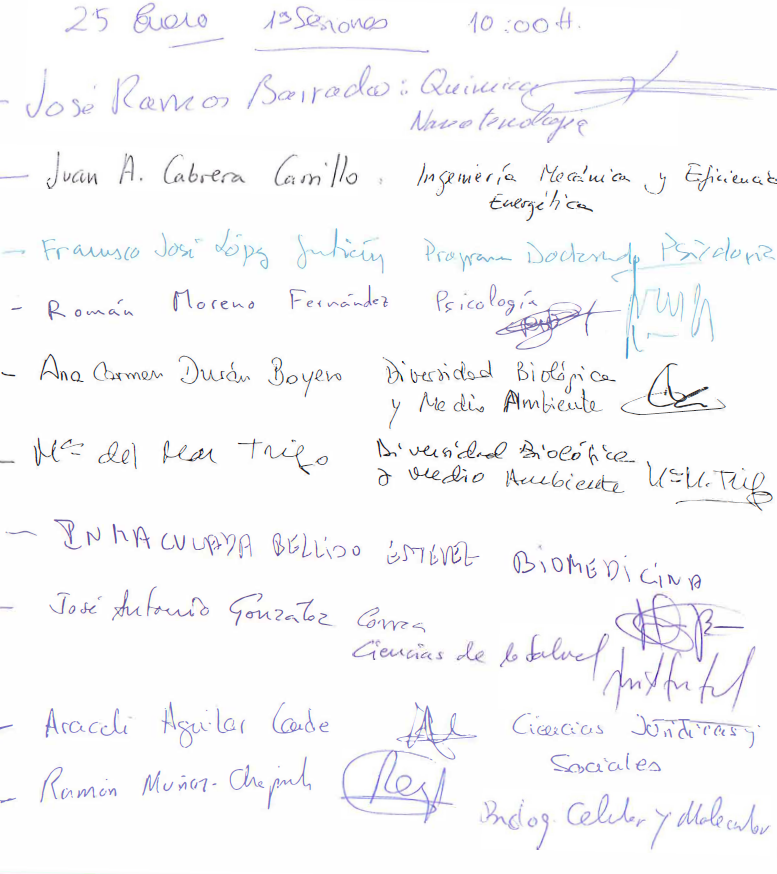 25 Enero 1ª Sesiones 10:00 H.
- José Ramos Barrado: Química
Nanotecnología
- Juan A. Cabrera Carrillo. Ingeniería Mecánica y Eficiencia
Energética
- Francisco José López Programa Doctorado Psicología
- Román Moreno Fernández Psicología
- Ana Carmen Durán Boyero Diversidad Biológica
y Medio Ambiente
- Mª del Mar Trigo Diversidad Biológica
y Medio Ambiente Mª M. Trigo
- INMACULADA BELLIDO ESTEVEZ BIOMEDICINA
- José Antonio González Correa
Ciencias de la Salud
- Araceli Aguilar Conde Ciencias Jurídicas y
Sociales
- Ramón Muñoz-Chápuli
Celular y Molecular